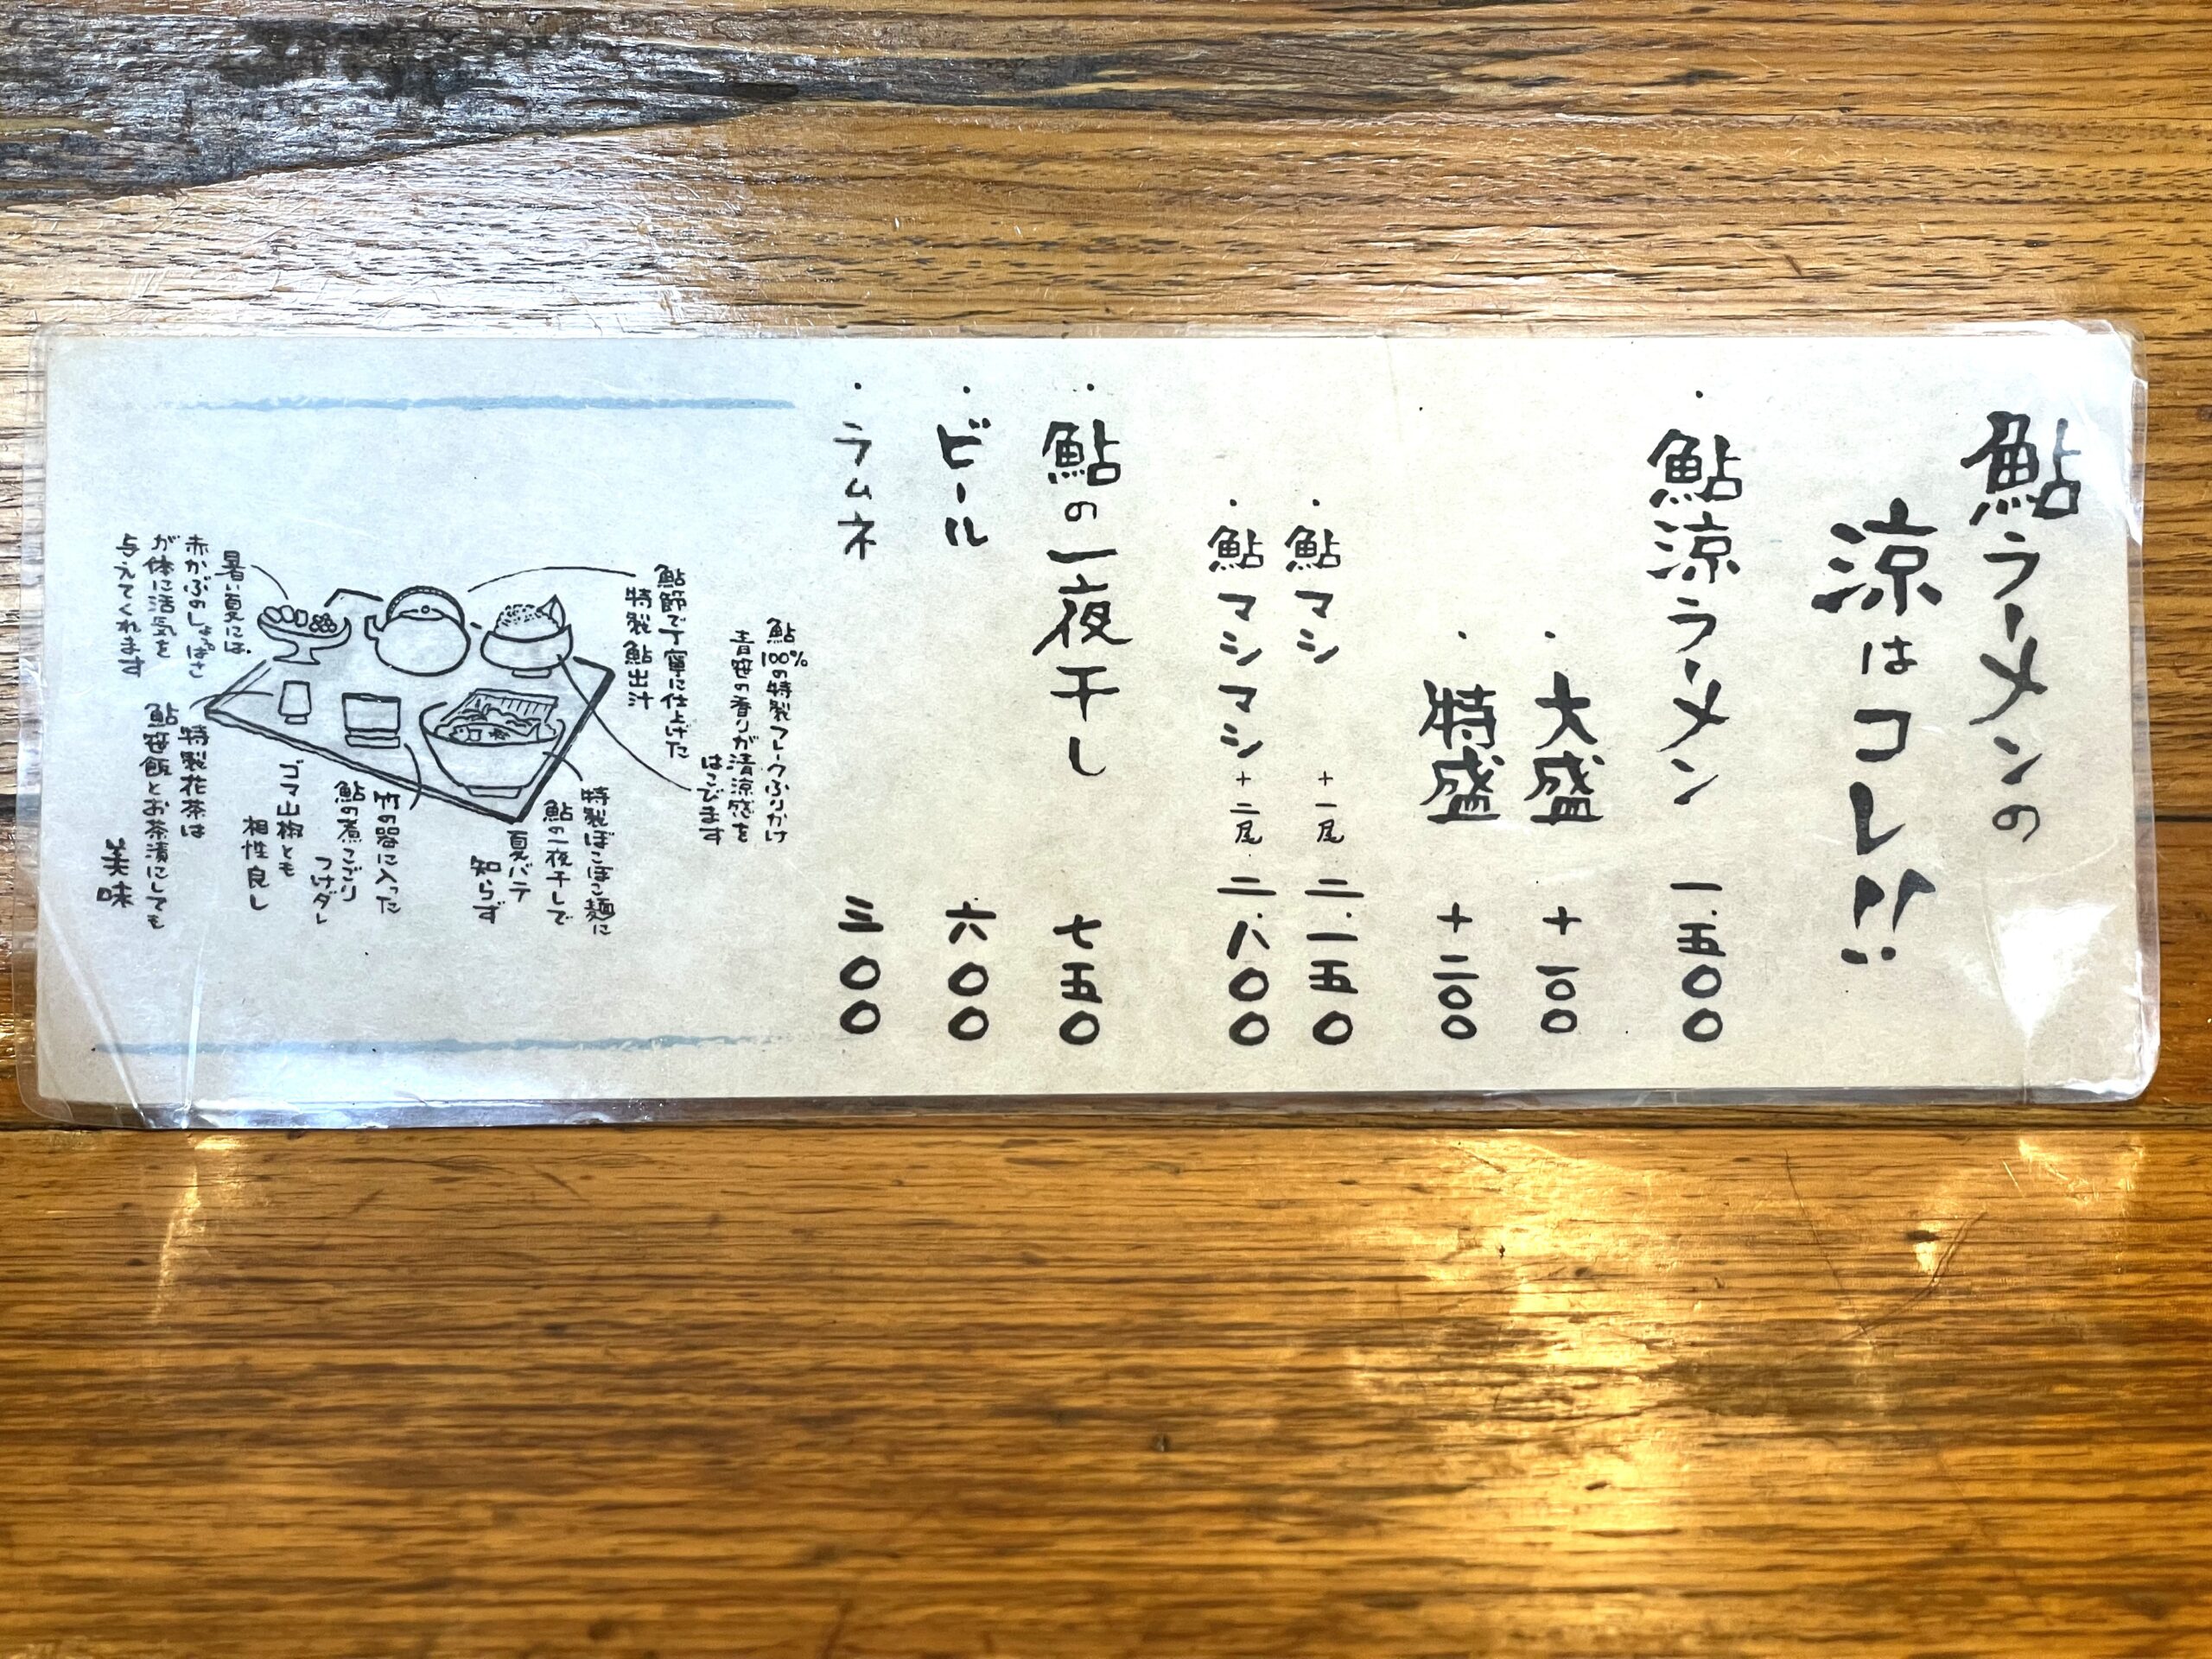 鮎ラーメンの
涼はコレ!!
・鮎涼ラーメン 一.五〇〇
・大盛 +一〇〇
・特盛 +二〇〇
・鮎マシ +一尾 二.一五〇
・鮎マシマシ +二尾 二.八〇〇
・鮎の一夜干し 七五〇
・ビール 六〇〇
・ラムネ 三〇〇
鮎100%の特製フレークふりかけ
青笹の香りが清涼感を
はこびます
鮎節で丁寧に仕上げた
特製鮎出汁
特製ぼこぼこ麺に
鮎の一夜干しで
夏バテ
知らず
竹の器に入った
鮎の煮こごり
つけダレ
ゴマ山椒とも
相性良し
暑い夏には、
赤かぶのしょっぱさ
が体に活気を
与えてくれます
特製花茶は
鮎笹飯とお茶漬にしても
美味